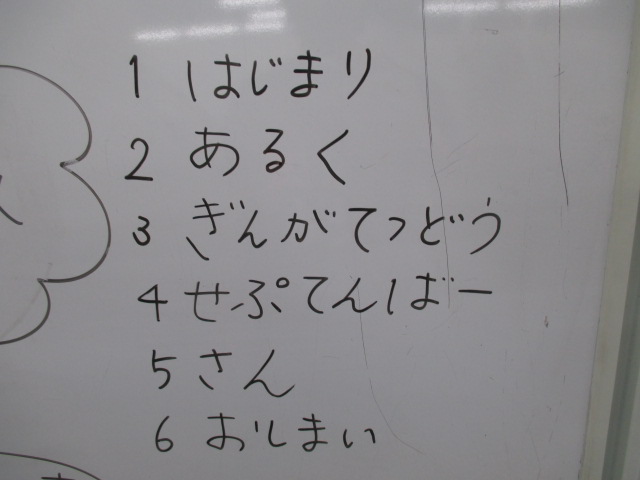 1 はじまり
2 あるく
3 ぎんがてつどう
4 せぷてんばー
5 さん
6 おしまい